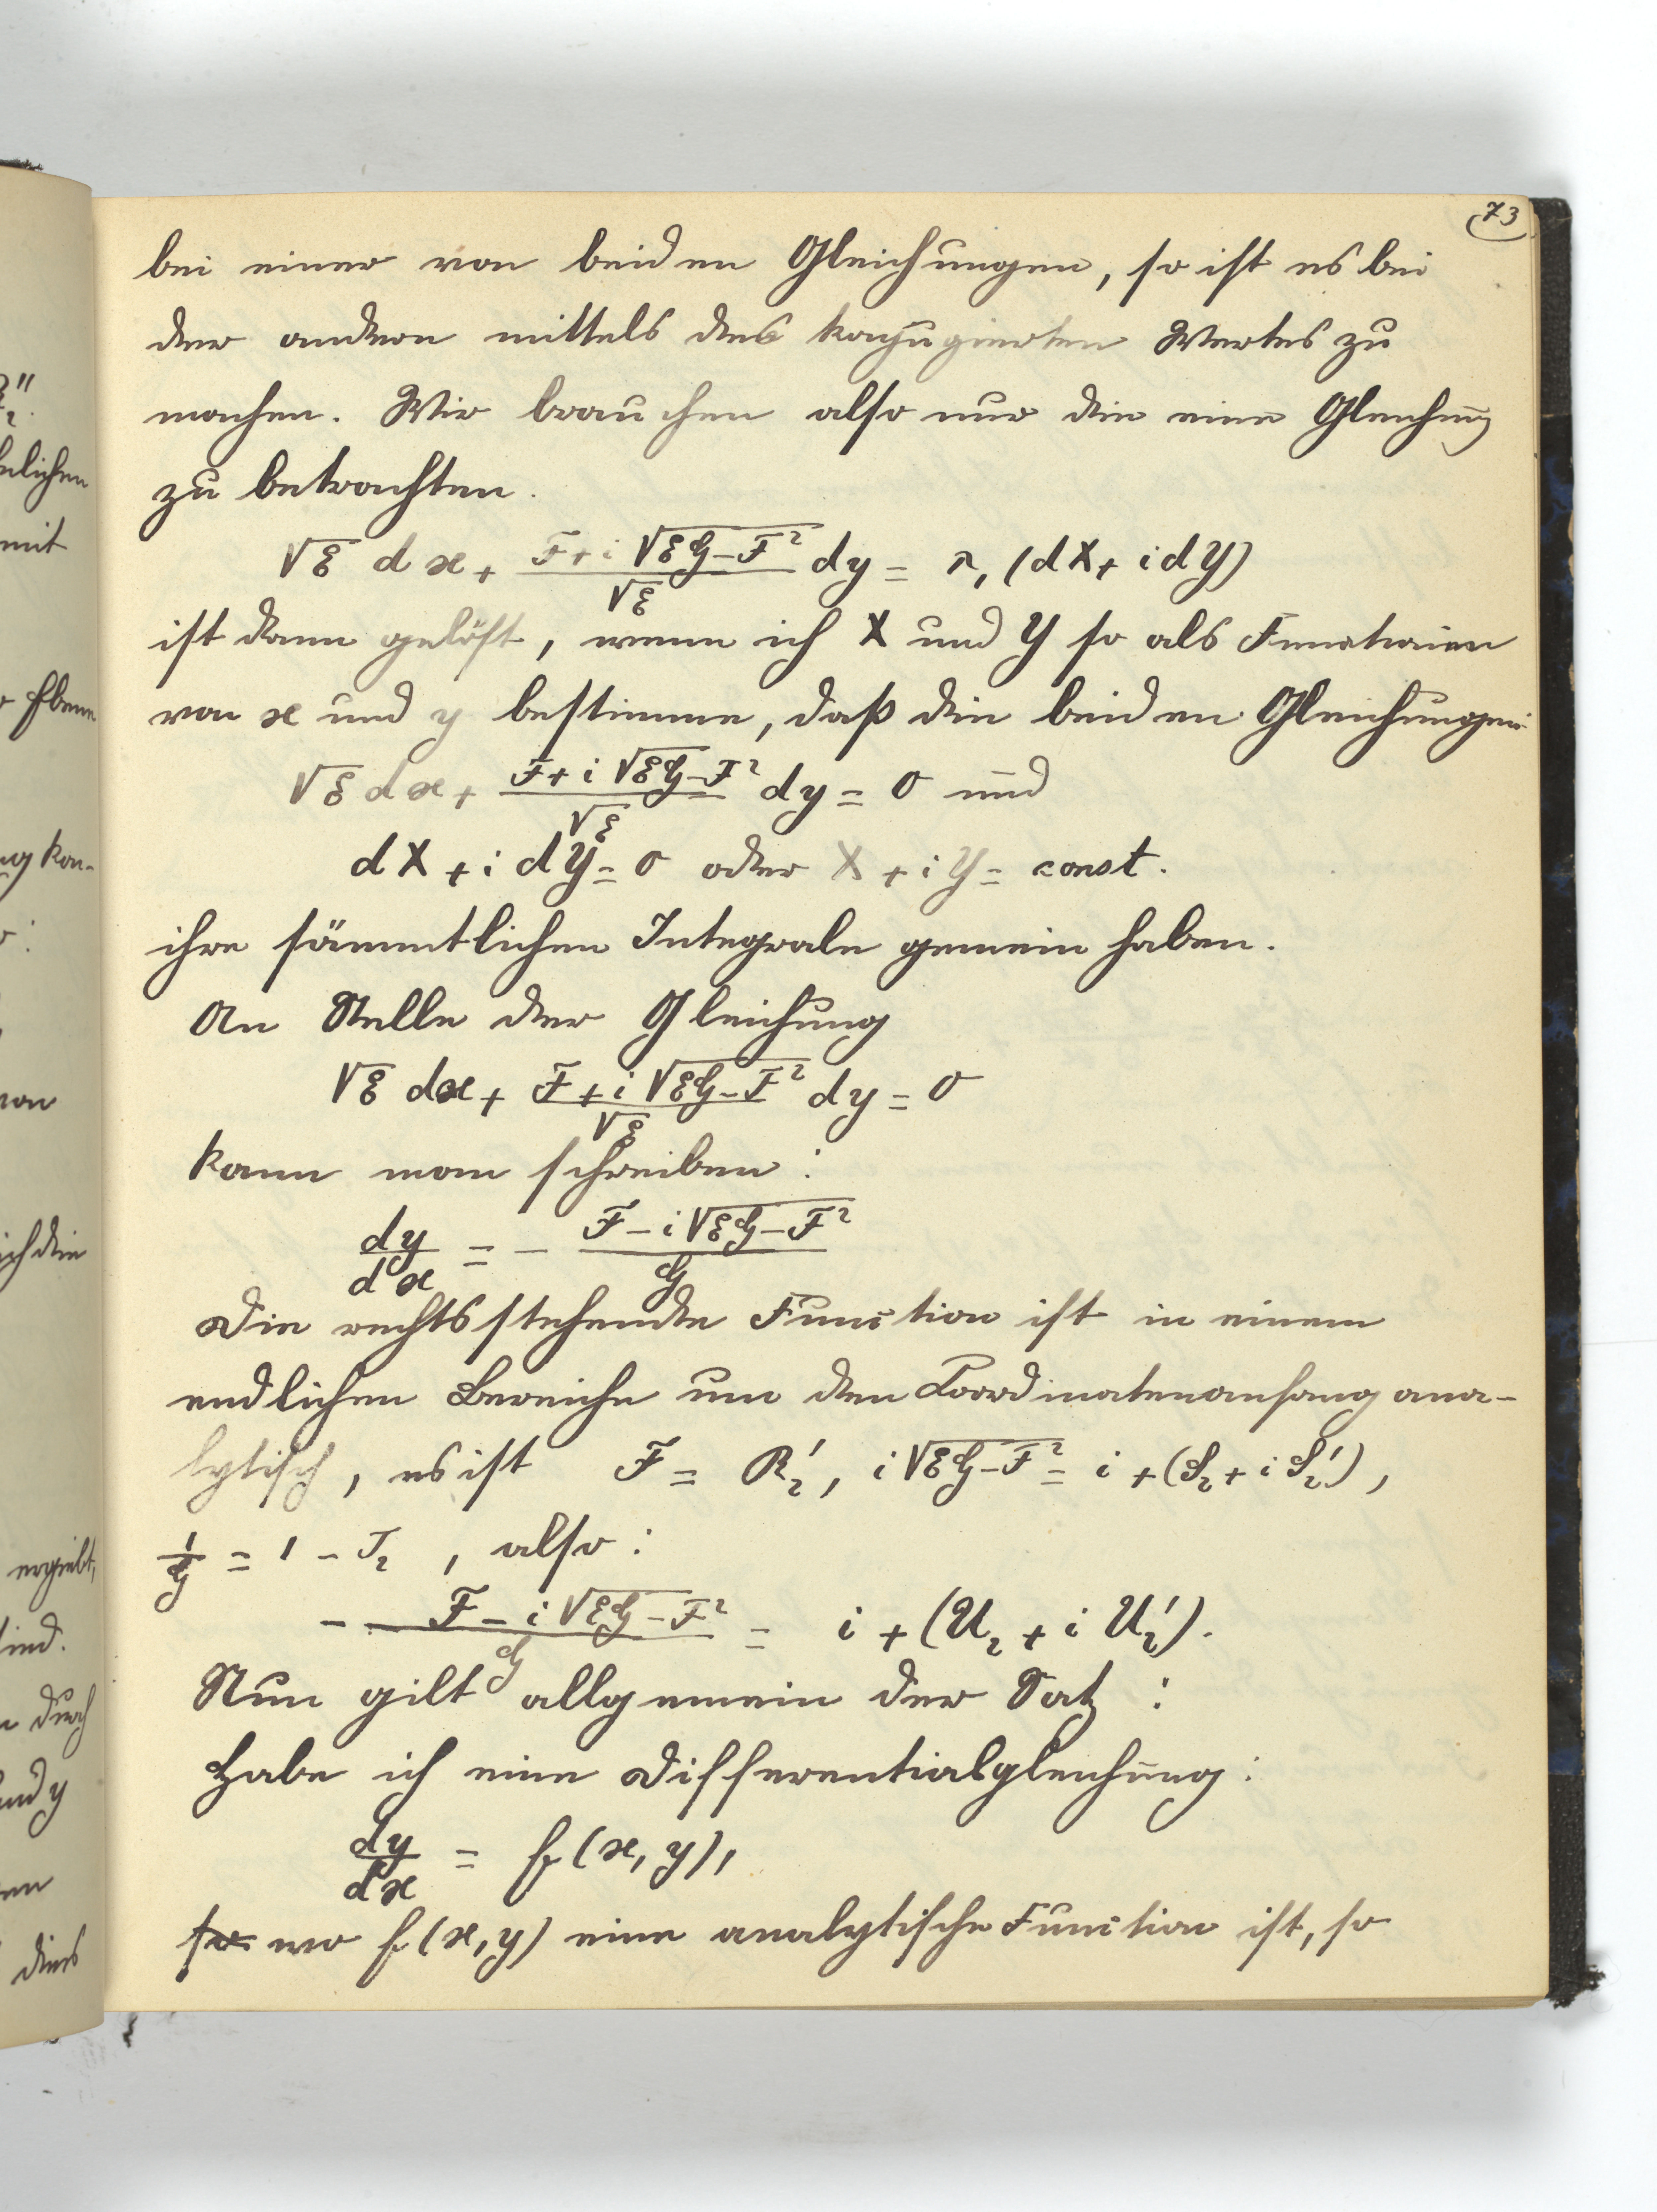 73
bei einer von beiden Gleichungen, so ist es bei
der andern mittels des konjugierten Wertes zu
machen. Wir brauchen also nur die eine Gleichung
zu betrachten.
√ℰ dx + (F + i √(ℰG − F²))/√ℰ dy = r₁ (dX + i dY)
ist dann gelöst, wenn ich X und Y so als Functionen
von x und y bestimme, daß die beiden Gleichungen
√ℰ dx + (F + i √(ℰG − F²))/√ℰ dy = 0 und
dX + i dY = 0 oder X + iY = const.
ihre sämmtlichen Integrale gemein haben.
An Stelle der Gleichung
√ℰ dx + (F + i √(ℰG − F²))/√ℰ dy = 0
kann man schreiben:
dy/dx = − (F − i √(ℰG − F²))/G
Die rechtsstehende Function ist in einem
endlichen Bereiche um den Coordinatenanfang ana-
lytisch, es ist F = R₂', i √(ℰG − F²) = i + (S₂ + i S₂'),
1/G = 1 − T₂, also:
− (F − i √(ℰG − F²))/G = i + (U₂ + i U₂').
Nun gilt allgemein der Satz:
Habe ich eine Differentialgleichung:
dy/dx = f(x, y),
so wo f(x, y) eine analytische Function ist, so